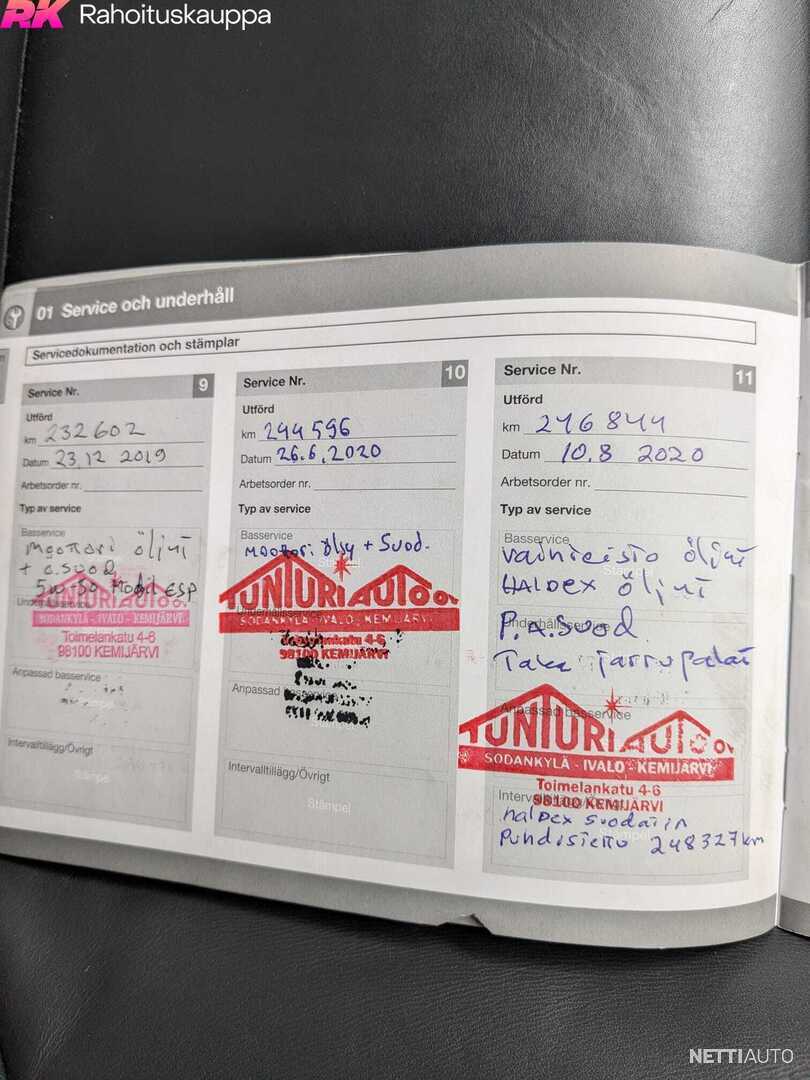 RK Rahoituskauppa
01 Service och underhåll
Servicedokumentation och stämplar
Service Nr. 9
Utförd
km 232602
Datum 23.12 2019
Arbetsorder nr.
Typ av service
Basservice
Moottori öljyt
+ ö.suod
5w-30 Mobil ESP
Underhållsservice
TUNTURI AUTO OY
SODANKYLÄ - IVALO - KEMIJÄRVI
Toimelankatu 4-6
98100 KEMIJÄRVI
Anpassad basservice
Intervalltillägg/Övrigt
Stämpel
Service Nr. 10
Utförd
km 244596
Datum 26.6.2020
Arbetsorder nr.
Typ av service
Basservice
Moottori öljy + Suod.
TUNTURI AUTO OY
Underhållsservice
SODANKYLÄ - IVALO - KEMIJÄRVI
Toimelankatu 4-6
98100 KEMIJÄRVI
Anpassad basservice
Intervalltillägg/Övrigt
Stämpel
Service Nr. 11
Utförd
km 246844
Datum 10.8 2020
Arbetsorder nr.
Typ av service
Basservice
Vaihteisto öljyt
HALDEX öljyt
Underhållsservice
P.A.Suod
Taka jarrupalat
Anpassad basservice
TUNTURI AUTO OY
SODANKYLÄ - IVALO - KEMIJÄRVI
Toimelankatu 4-6
98100 KEMIJÄRVI
haldex suodatin
Stämpel
Puhdistettu 248327km
NETTIAUTO